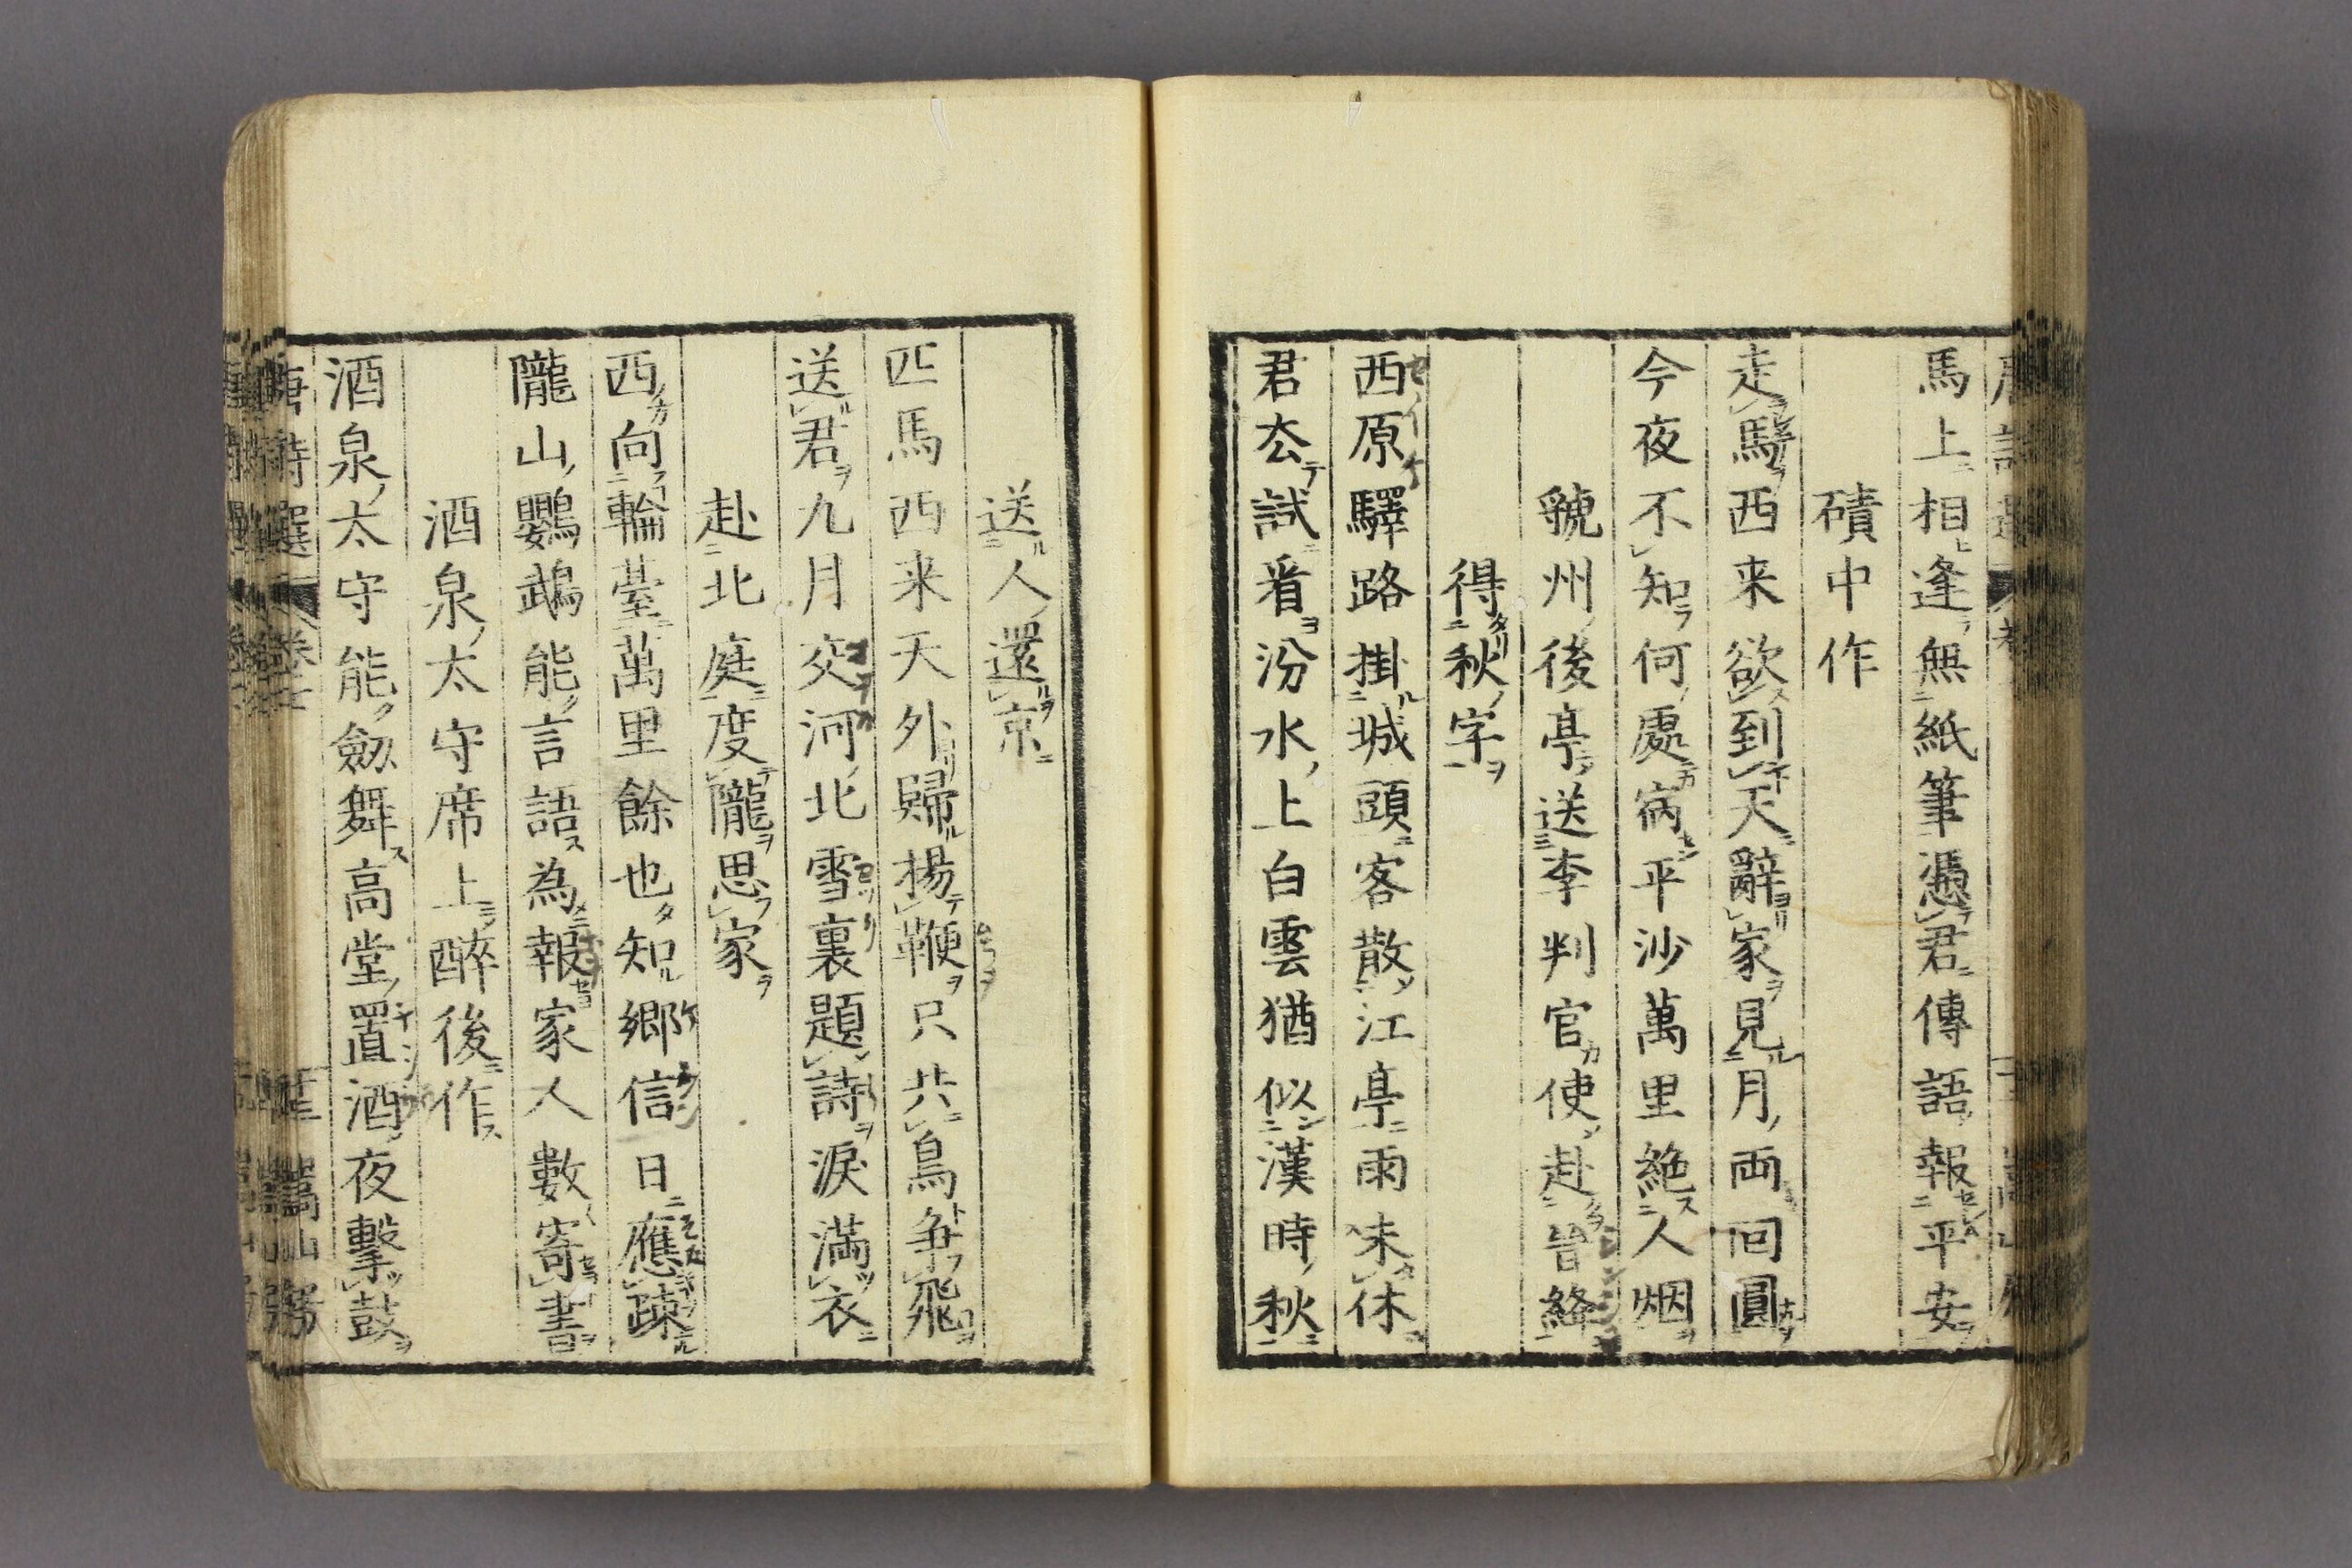 馬上相逢無紙筆憑君傳語報平安
磧中作
走馬西来欲到天辭家見月両回圓
今夜不知何處宿平沙萬里絶人烟
虢州後亭送李判官使赴晉絳
得秋字
西原驛路掛城頭客散江亭雨未休
君去試看汾水上白雲猶似漢時秋
送人還京
匹馬西来天外歸揚鞭只共鳥争飛
送君九月交河北雪裏題詩淚満衣
赴北庭度隴思家
西向輪臺萬里餘也知郷信日應疎
隴山鸚鵡能言語為報家人數寄書
酒泉太守席上醉後作
酒泉太守能劔舞高堂置酒夜擊鼓
唐詩選 卷七